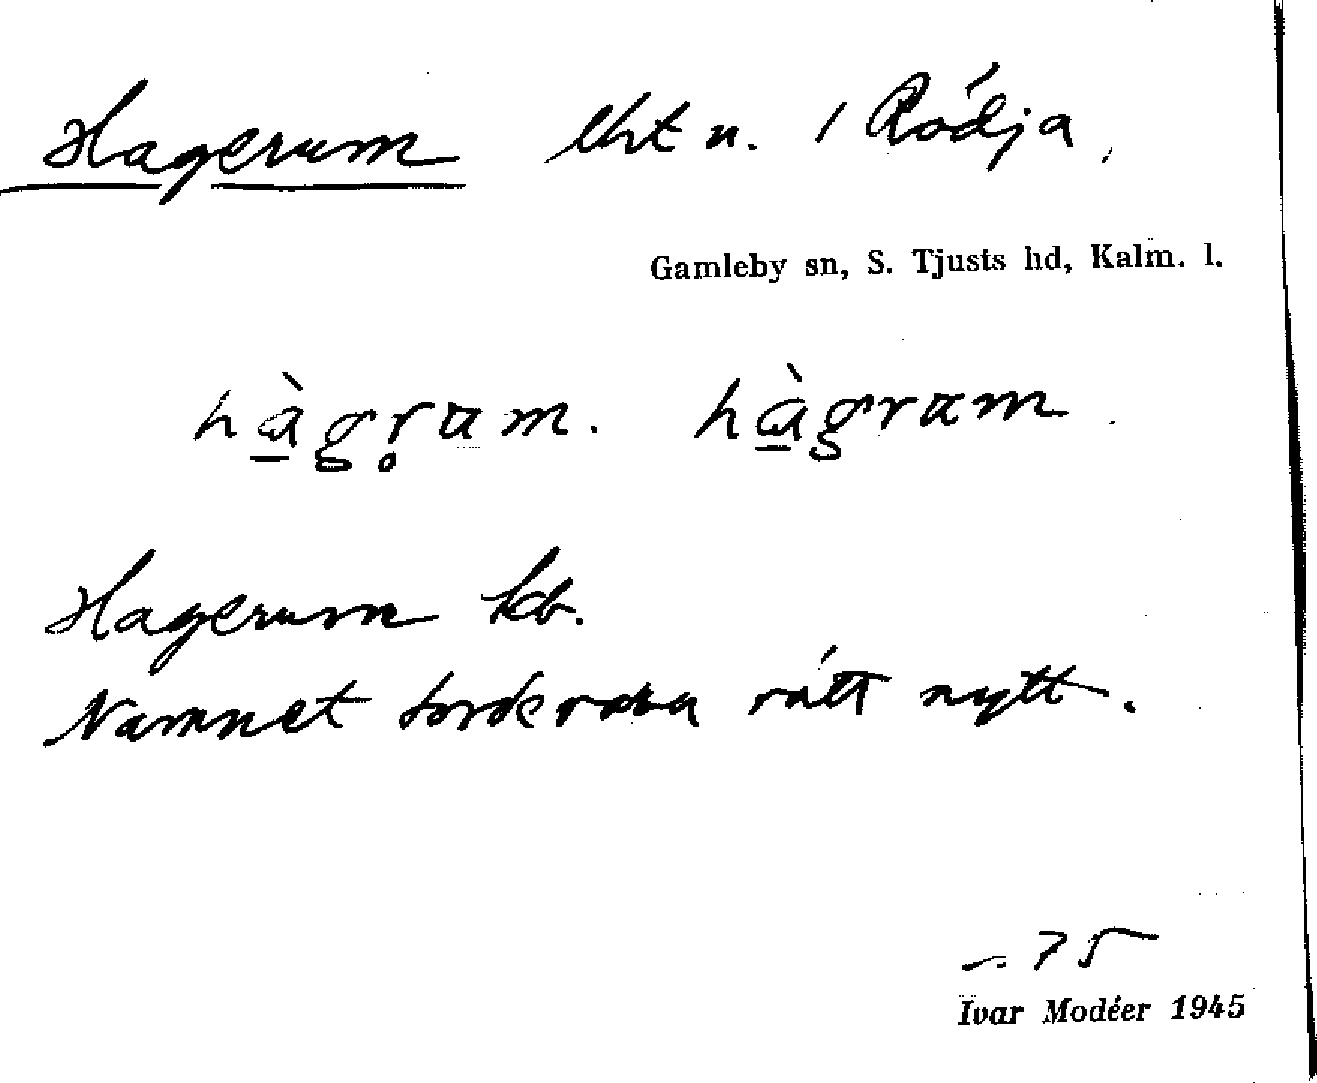 Hagerum lht n. / Rödja,
Gamleby sn, S. Tjusts hd, Kalm. l.
hàgr̥am. hàgram.
Hagerum kb.
Namnet torde vara rätt nytt.
75
Ivar Modéer 1945